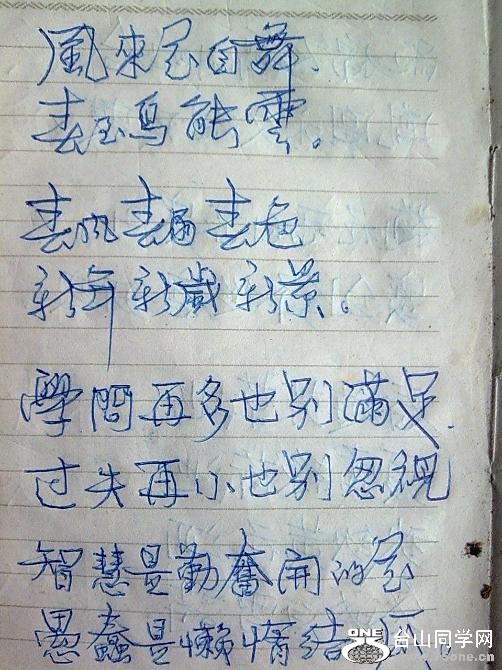 風來花自舞.
春至鳥能雲。
春風春雨春色
新年新歲新景。
學問再多也别滿足.
过失再小也别忽视
智慧是勤奮開的花
愚蠢是懒惰结
ONE 台山同学网
gone.cn